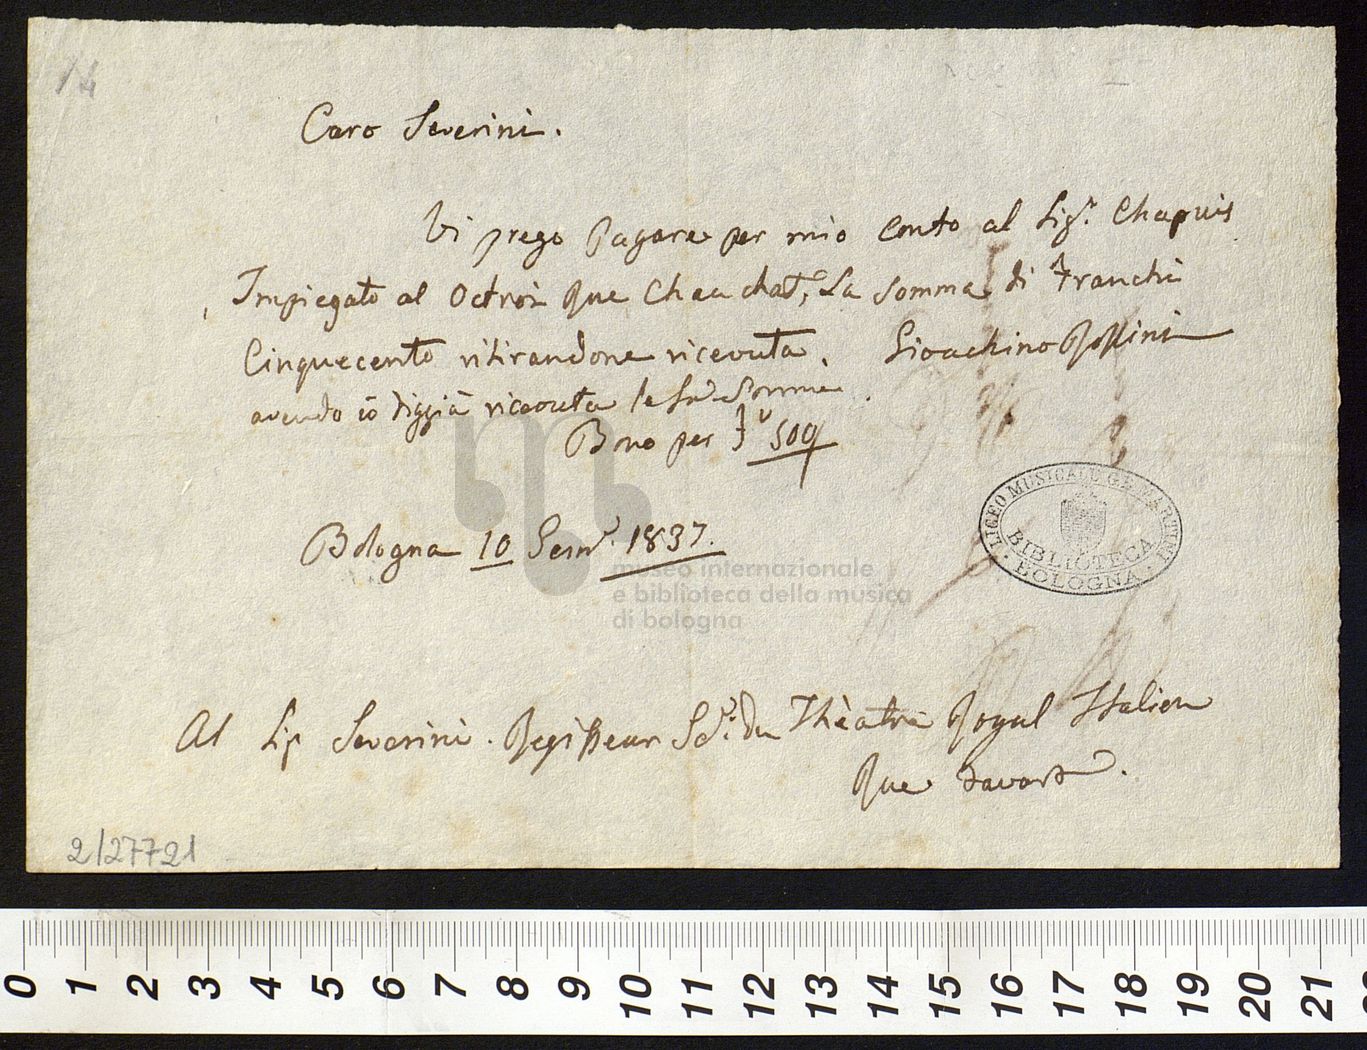 14
Caro Severini.
Vi prego pagare per mio Conto al Sigr. Chapuis
Impiegato al Octroi Rue Chauchat, La Somma di Franchi
Cinquecento ritirandone ricevuta. Gioachino Rossini
avendo io diggià ricevuta la Sud. Somma.
Bono per Fr 500
Bologna 10 Genr. 1837.
Al Sig Severini. Regisseur Gl. du Thèatre Royal Italien
Rue Favart.
LICEO MUSICALE G.B. MARTINI
BIBLIOTECA
BOLOGNA
museo internazionale
e biblioteca della musica
di bologna
2/27721
0 1 2 3 4 5 6 7 8 9 10 11 12 13 14 15 16 17 18 19 20 21